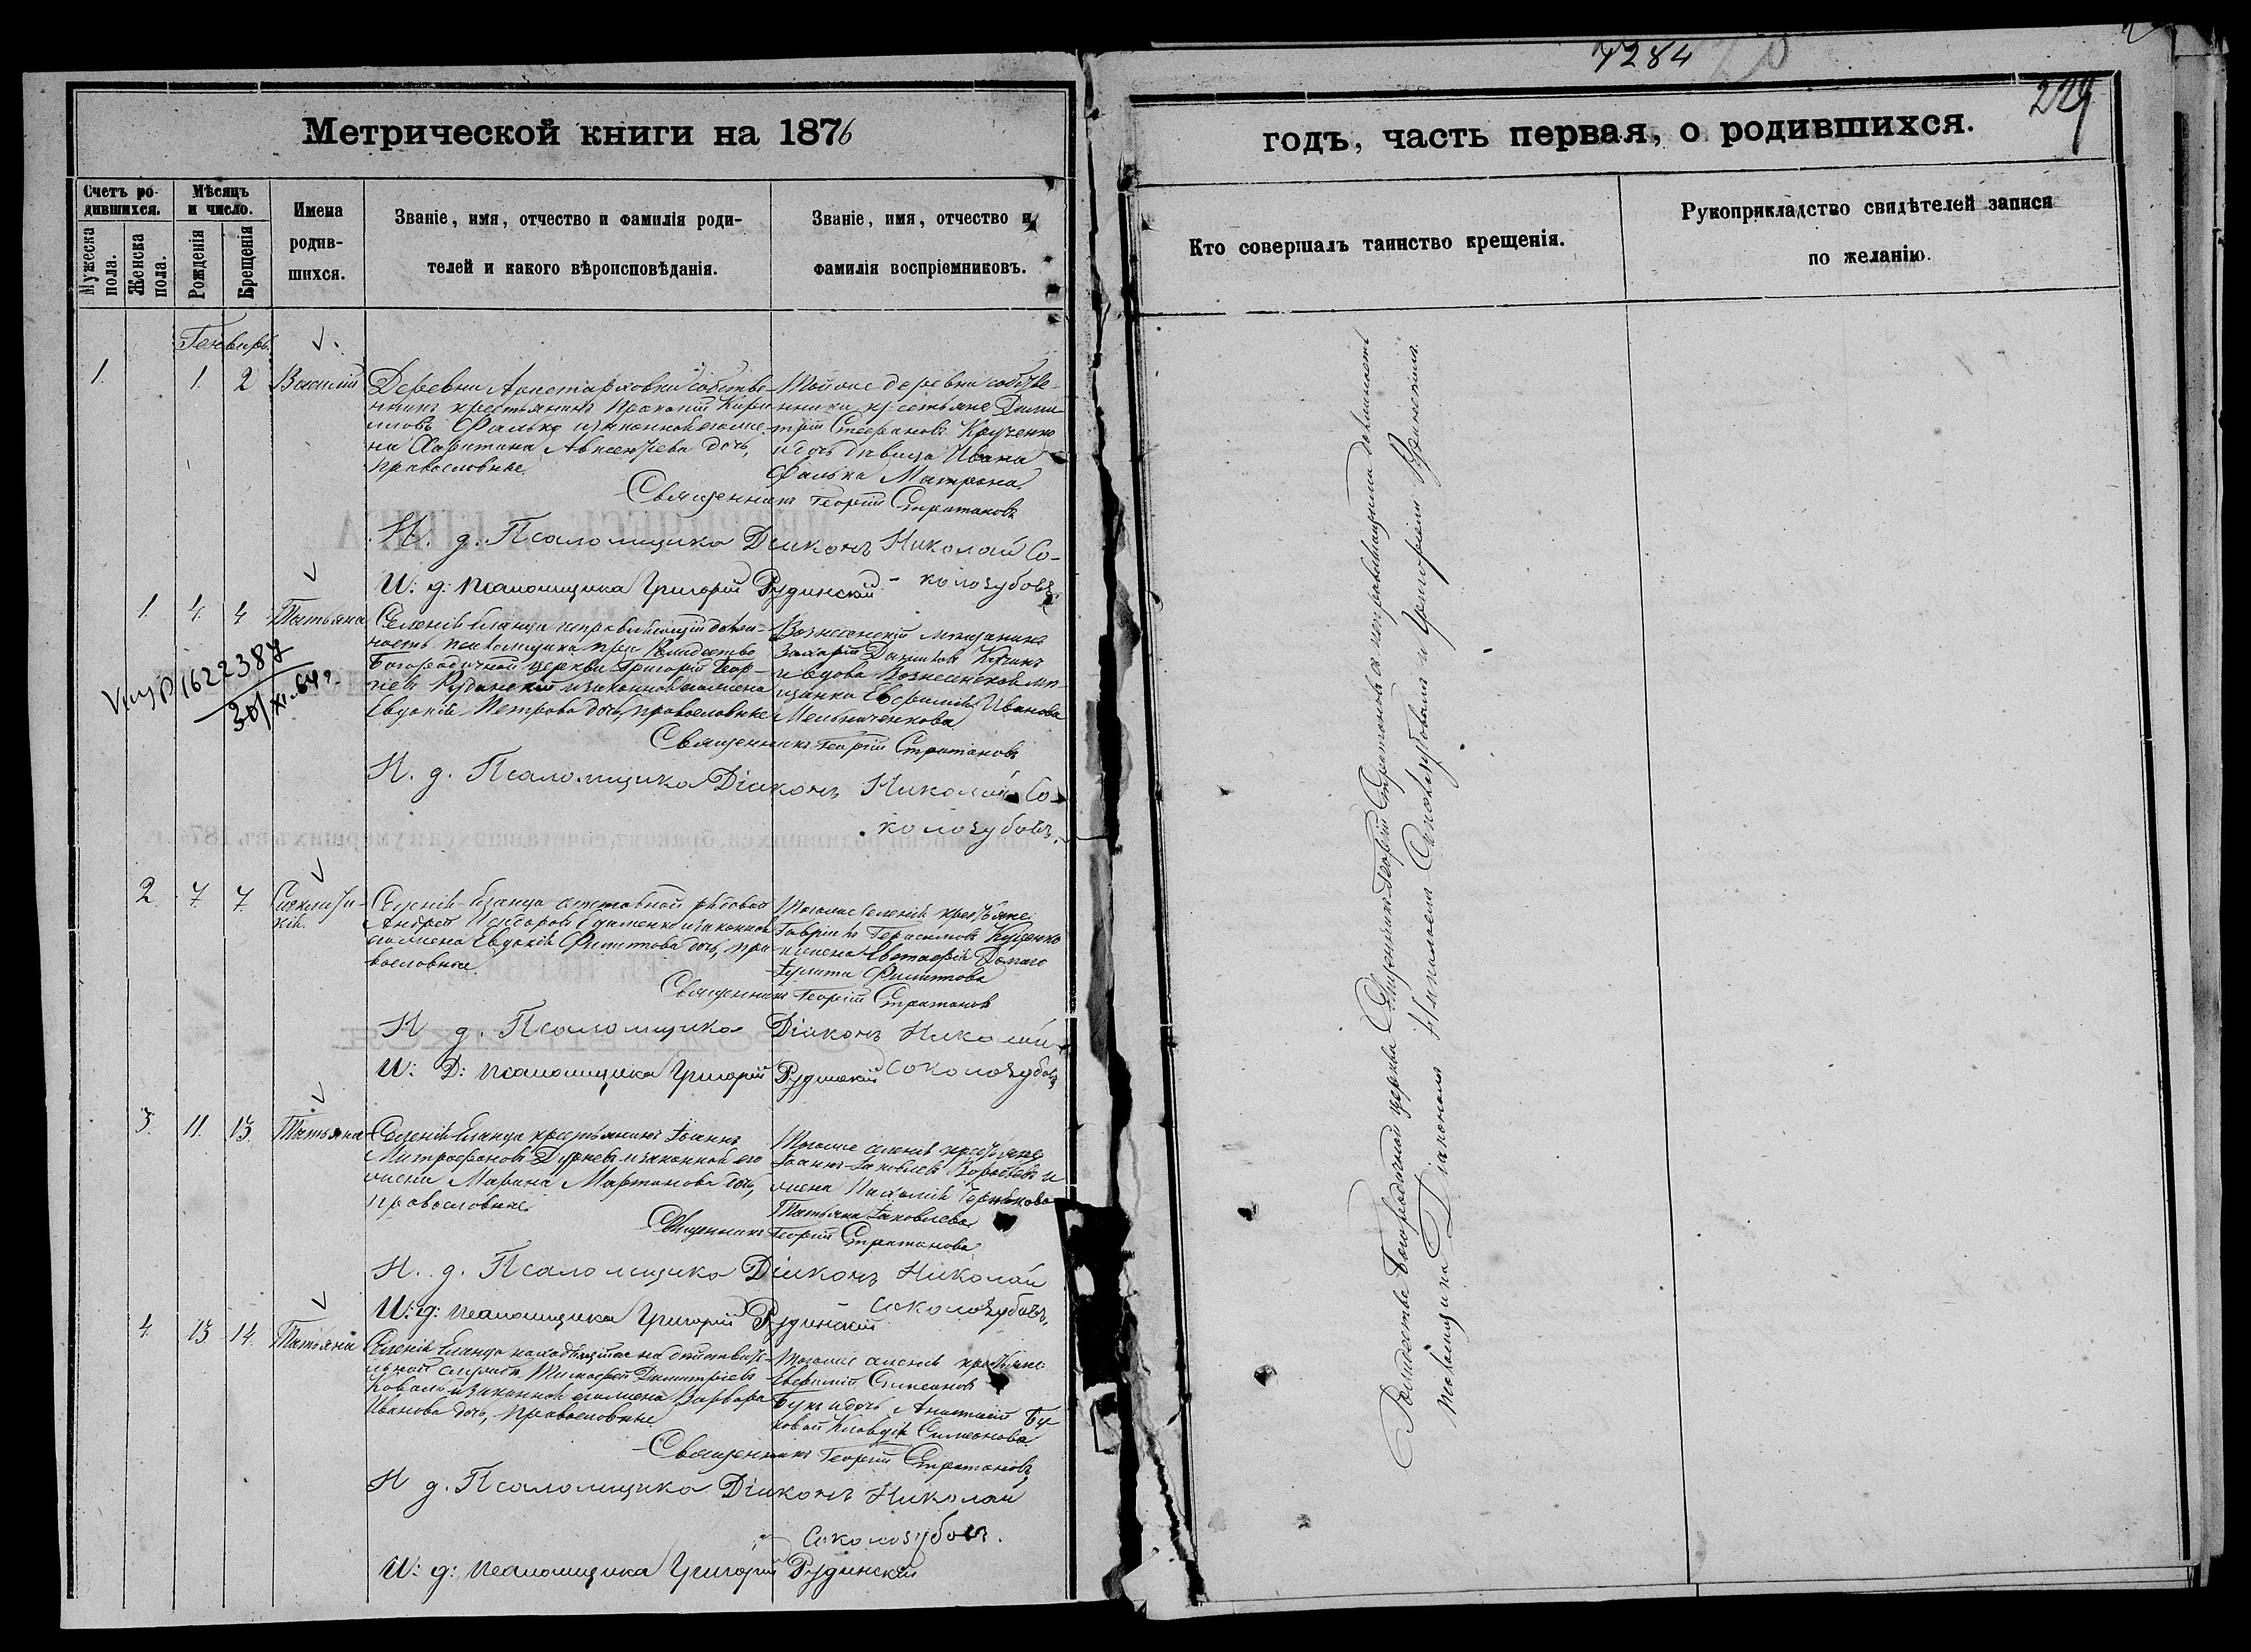 Метрической книги на 1876
Счетъ ро-
дившихся.
Мужеска
пола.
Женска
пола.
Мѣсяцъ
и число.
Рожденія
Крещенія
Имена
родив-
шихся.
Званіе, имя, отчество и фамилія роди-
телей и какого вѣроисповѣданія.
Званіе, имя, отчество и
фамилія воспріемниковъ.
Генварь
1. 1. 2 Василій
Деревни Аристарховки собстве-
нникъ крестьянинъ Прокопій Кири-
ловъ Фалько и законная его же-
на Харитина Авксентьева дочь,
православные
Той же деревни собстве-
нники крестьяне Дими-
трій Стефановъ Крученко
и дочь дѣвица Ивана
Фалька Матрона.
Священникъ Георгій Стратановъ
И. д. Псаломщика Діаконъ Николай Со-
колозубовъ
И: д: Псаломщика Григорій Рудинскій
1. 4. 4 Татьяна
Селенія Еланца исправляющій долж-
ность псаломщика при Рождество
Богородичной церкви Григорій Геор-
гіевъ Рудинскій и законная его жена
Евдокія Петрова дочь, православные
Вознесенскій мѣщанинъ
Захарій Даниловъ
и вдова Вознесенская мѣ-
щанка Евфимія Иванова
Мельниченкова
Священникъ Георгій Стратановъ
И. д. Псаломщика Діаконъ Николай Со-
колозубовъ.
1622387
30/XI-64 г.
2. 7. 7. Синклити-
кія.
Селенія Еланца отставной рядовой
Андрей Исидоровъ и законная
его жена Евдокія Филиппова дочь, пра-
вославные
Того же селенія крестьяне
Гавріилъ Герасимовъ Куценко
и жена Евстафія
Іулита Филиппова
Священникъ Георгій Стратановъ
И д. Псаломщика Діаконъ Николай
Соколозубовъ
И: Д: Псаломщика Григорій Рудинскій
3. 11. 13. Татьяна
Селенія Еланца крестьянинъ Іоаннъ
Митрофановъ Дурневъ и законная его
жена Марина Мартинова дочь,
православные
Того же селенія крестьяне
Іоаннъ Іаковлевъ и
жена
Татьяна Іаковлева
Священникъ Георгій Стратановъ
И. д. Псаломщика Діаконъ Николай
Соколозубовъ.
И: д: Псаломщика Григорій Рудинскій
4. 13 14. Татьяна
Селенія Еланца находящійся на дѣйствите-
льной службѣ Тимофей Димитріевъ
Коваль и законная его жена Варвара
Иванова дочь, православные
Того же селенія крестьяне
Евфимій Симеоновъ
Букъ и дочь Анастасіи Бу-
ковой Клавдія Симеонова
Священникъ Георгій Стратановъ
И д. Псаломщика Діаконъ Николай
Соколозубовъ.
И: д: Псаломщика Григорій Рудинскій
7284
20
229
годъ, часть первая, о родившихся.
Кто совершалъ таинство крещенія.
Рукоприкладство свидѣтелей записи
по желанію.
Рождество Богородичной церкви Священникъ Георгій Стратановъ съ исправляющими должность
псаломщика Діакономъ Николаемъ Соколозубовымъ и Григоріемъ